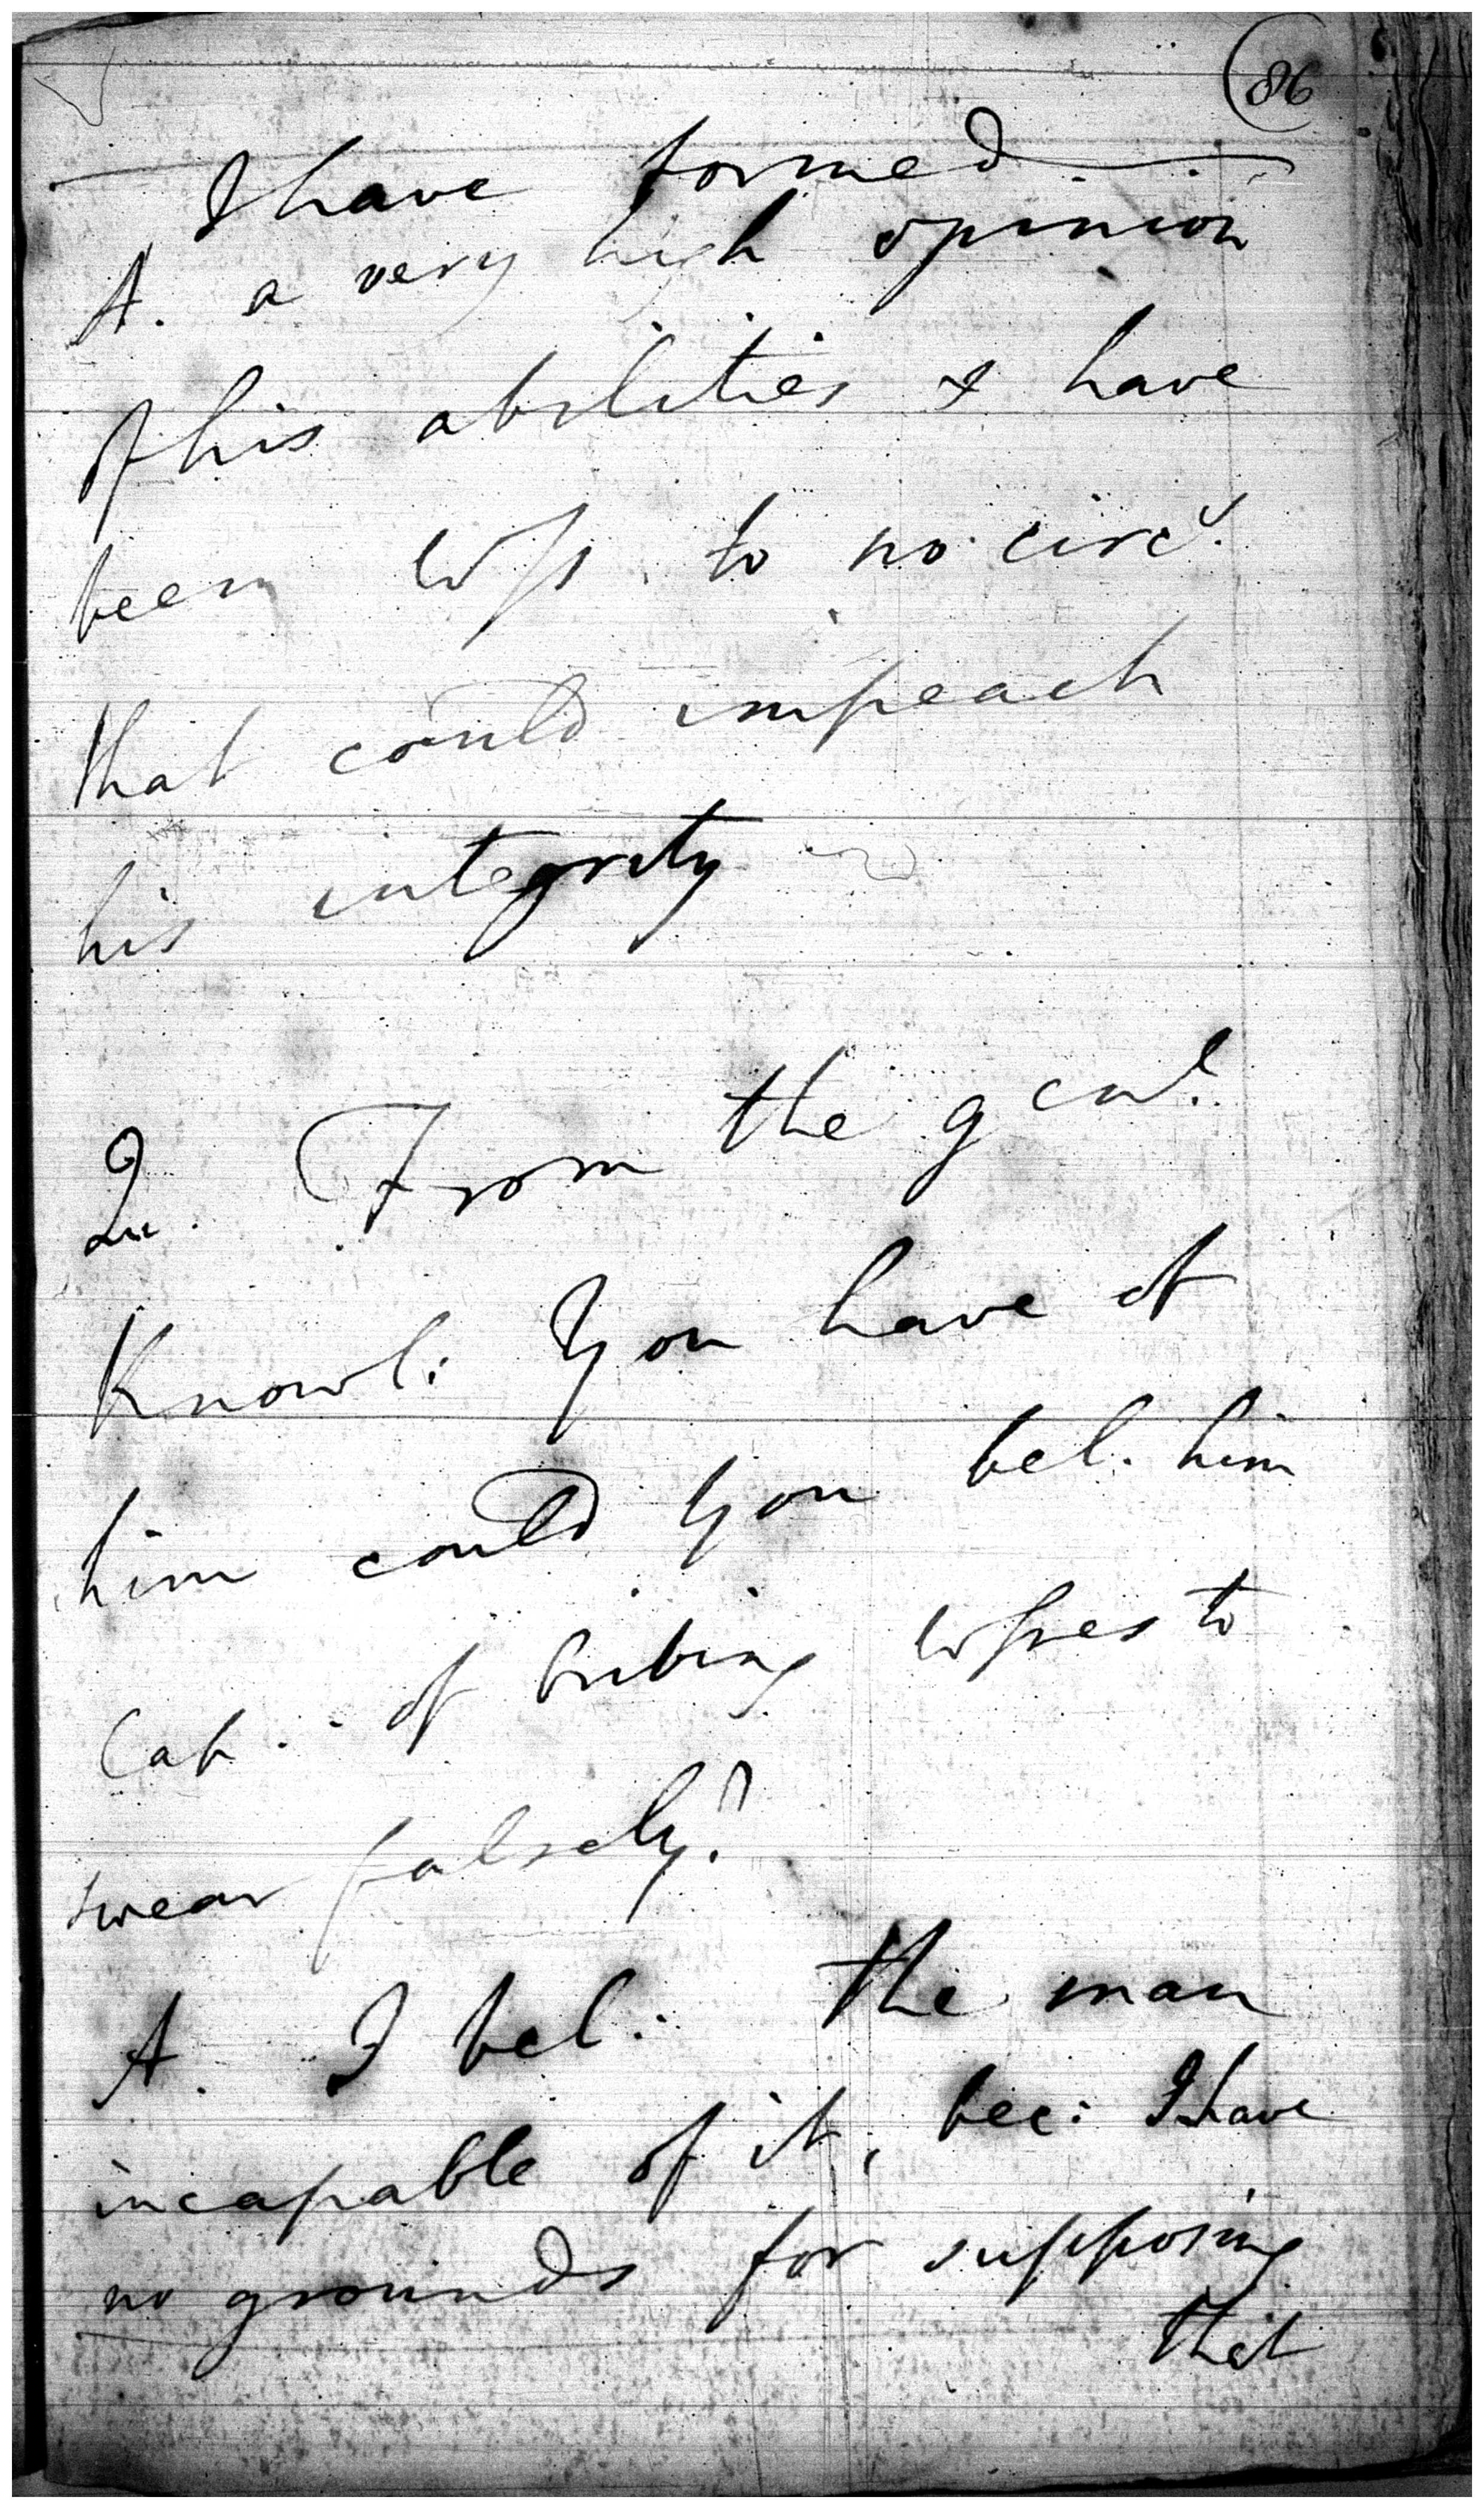 86
I have formed
A. a very high opinion
of his abilities & have
been wss to no circ.
that could impeach
his integrity
Qu. From the genl.
Knowl: you have of
him could you bel. him
Cap. of bribing wsses to
swear falsely?
A. I bel. the man
incapable of it, bec: I have
no grounds for supposing
that